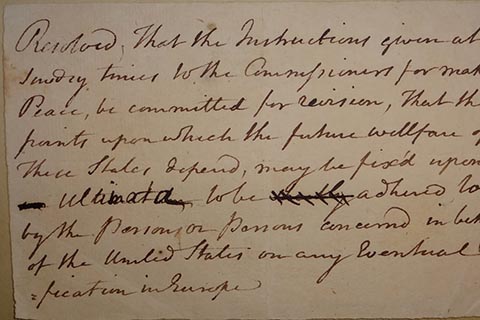 Resolved, That the Instructions given at
sundry times to the Commissioners for mak
Peace, be committed for revision, That the
points upon which the future wellfare of
These States depend, may be fix'd upon
ultimata, to be adhered to
by the Person, or Persons concerned in beh
of the United States on any Eventual
=fication in Europe